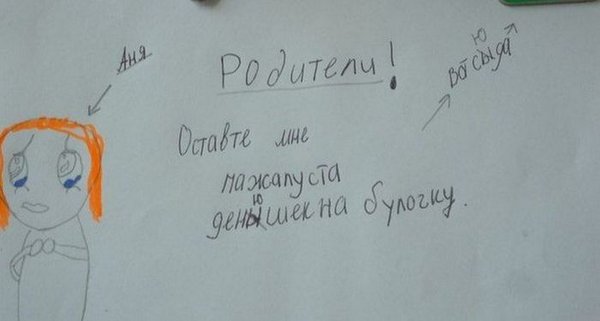 Аня
Родители!
ю
Вот сыда
Оставте мне
пажалуста
ю
денышек на булочку.